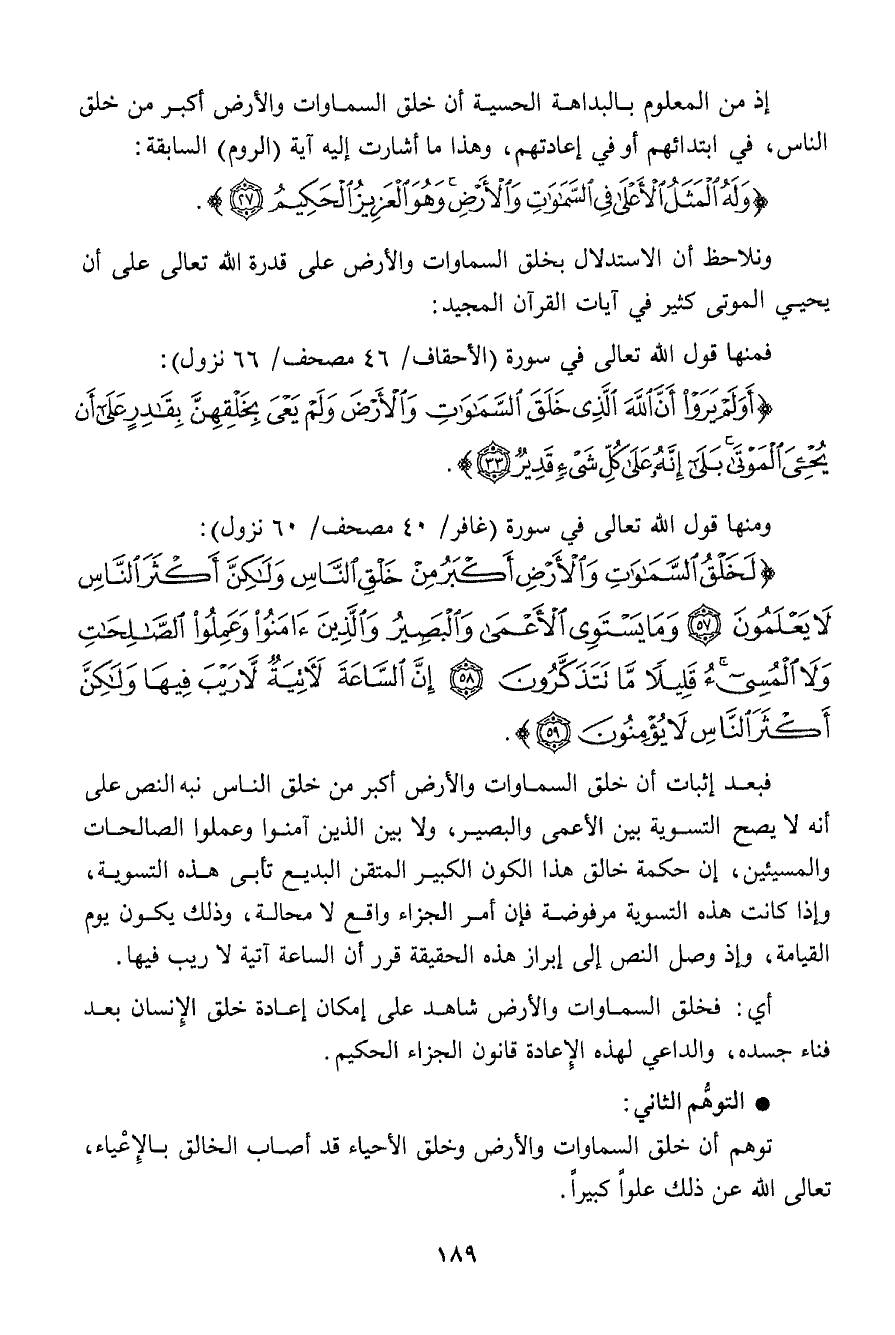 إذ من المعلوم بالبداهة الحسية أن خلق السماوات والأرض أكبر من خلق
الناس، في ابتدائهم أو في إعادتهم، وهذا ما أشارت إليه آية (الروم) السابقة:
﴿وَلَهُ ٱلۡمَثَلُ ٱلۡأَعۡلَىٰ فِي ٱلسَّمَٰوَٰتِ وَٱلۡأَرۡضِۚ وَهُوَ ٱلۡعَزِيزُ ٱلۡحَكِيمُ ٢٧﴾.
ونلاحظ أن الاستدلال بخلق السماوات والأرض على قدرة الله تعالى على أن
يحيـي الموتى كثير في آيات القرآن المجيد:
فمنها قول الله تعالى في سورة (الأحقاف/ ٤٦ مصحف/ ٦٦ نزول):
﴿أَوَلَمۡ يَرَوۡاْ أَنَّ ٱللَّهَ ٱلَّذِي خَلَقَ ٱلسَّمَٰوَٰتِ وَٱلۡأَرۡضَ وَلَمۡ يَعۡيَ بِخَلۡقِهِنَّ بِقَٰدِرٍ عَلَىٰٓ أَن
يُحۡـِۧيَ ٱلۡمَوۡتَىٰۚ بَلَىٰٓ إِنَّهُۥ عَلَىٰ كُلِّ شَيۡءٖ قَدِيرٞ ٣٣﴾.
ومنها قول الله تعالى في سورة (غافر/ ٤٠ مصحف/ ٦٠ نزول):
﴿لَخَلۡقُ ٱلسَّمَٰوَٰتِ وَٱلۡأَرۡضِ أَكۡبَرُ مِنۡ خَلۡقِ ٱلنَّاسِ وَلَٰكِنَّ أَكۡثَرَ ٱلنَّاسِ
لَا يَعۡلَمُونَ ٥٧ وَمَا يَسۡتَوِي ٱلۡأَعۡمَىٰ وَٱلۡبَصِيرُ وَٱلَّذِينَ ءَامَنُواْ وَعَمِلُواْ ٱلصَّٰلِحَٰتِ
وَلَا ٱلۡمُسِيٓءُۚ قَلِيلٗا مَّا تَتَذَكَّرُونَ ٥٨ إِنَّ ٱلسَّاعَةَ لَأٓتِيَةٞ لَّا رَيۡبَ فِيهَا وَلَٰكِنَّ
أَكۡثَرَ ٱلنَّاسِ لَا يُؤۡمِنُونَ ٥٩﴾.
فبعد إثبات أن خلق السماوات والأرض أكبر من خلق الناس نبه النص على
أنه لا يصح التسوية بين الأعمى والبصير، ولا بين الذين آمنوا وعملوا الصالحات
والمسيئين، إن حكمة خالق هذا الكون الكبير المتقن البديع تأبى هذه التسوية،
وإذا كانت هذه التسوية مرفوضة فإن أمر الجزاء واقع لا محالة، وذلك يكون يوم
القيامة، وإذ وصل النص إلى إبراز هذه الحقيقة قرر أن الساعة آتية لا ريب فيها.
أي: فخلق السماوات والأرض شاهد على إمكان إعادة خلق الإنسان بعد
فناء جسده، والداعي لهذه الإعادة قانون الجزاء الحكيم.
● التوهُّم الثاني:
توهم أن خلق السماوات والأرض وخلق الأحياء قد أصاب الخالق بالإعْياء،
تعالى الله عن ذلك علواً كبيراً.
١٨٩